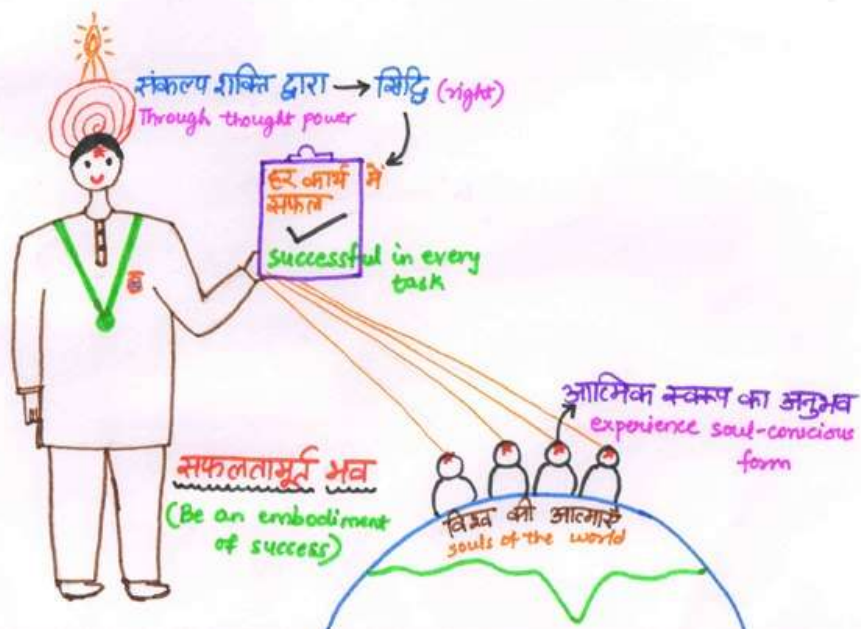 संकल्प शक्ति द्वारा → सिद्धि (right)
Through thought power
हर कार्य में
सफल
successful in every
task
आत्मिक स्वरूप का अनुभव
experience soul-conscious
form
सफलतामूर्त भव
(Be an embodiment
of success)
विश्व की आत्माएँ
souls of the world